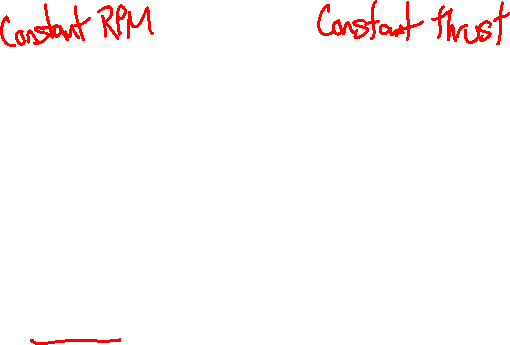 Constant RPM
Constant thrust